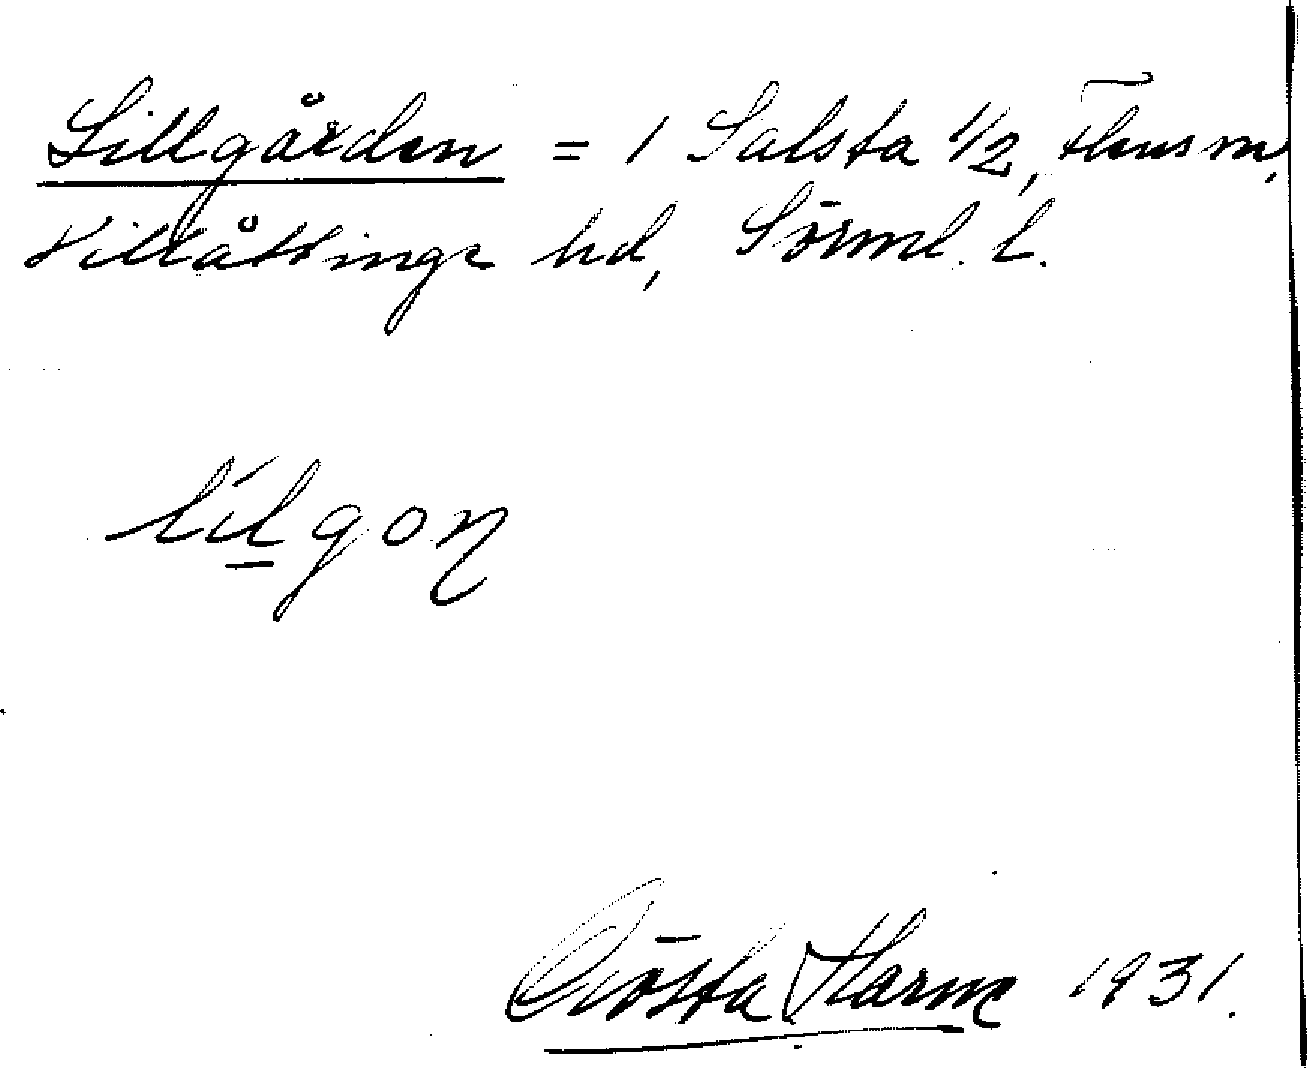 Lillgården = 1 Salsta 1/2, Flens sn,
Villåttinge hd, Sörml. l.
lilgon
Gösta Harme 1931.